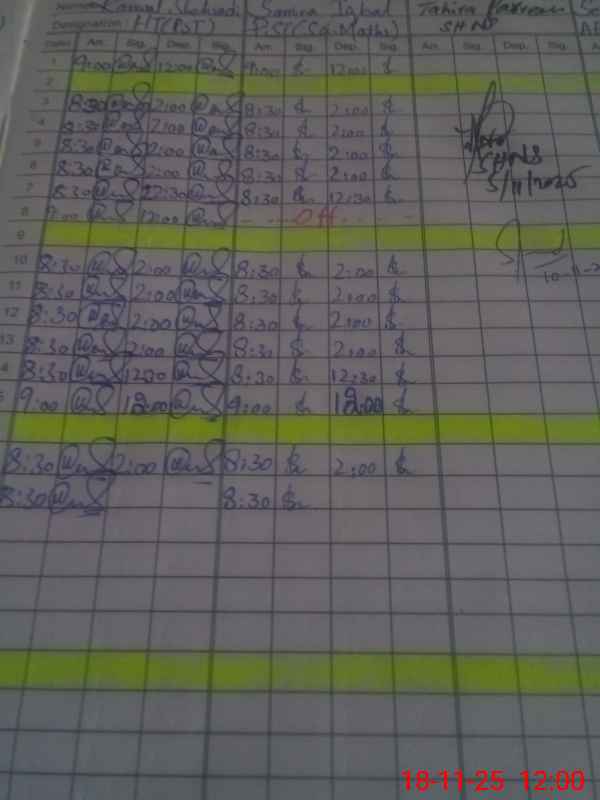 Name Kanwal Shahzadi Samina Iqbal Tahira Parveen
Designation: HT(PST) PST(Sci, Maths) SHNS
Date Arr. Sig. Dep. Sig. Arr. Sig. Dep. Sig. Arr. Sig. Dep. Sig.
1 9:00 12:00 9:00 12:00
2
3 8:30 2:00 8:30 2:00
4 8:30 2:00 8:30 2:00
5 8:30 2:00 8:30 2:00
6 8:30 2:00 8:30 2:00
7 8:30 12:30 8:30 12:30
8 9:00 12:00 Off
SHNS
5/11/2025
9
10 8:30 2:00 8:30 2:00
11 8:30 2:00 8:30 2:00
12 8:30 2:00 8:30 2:00
13 8:30 2:00 8:30 2:00
4 8:30 12:30 8:30 12:30
5 9:00 12:00 9:00 12:00
8:30 2:00 8:30 2:00
8:30 8:30
18-11-25 12:00